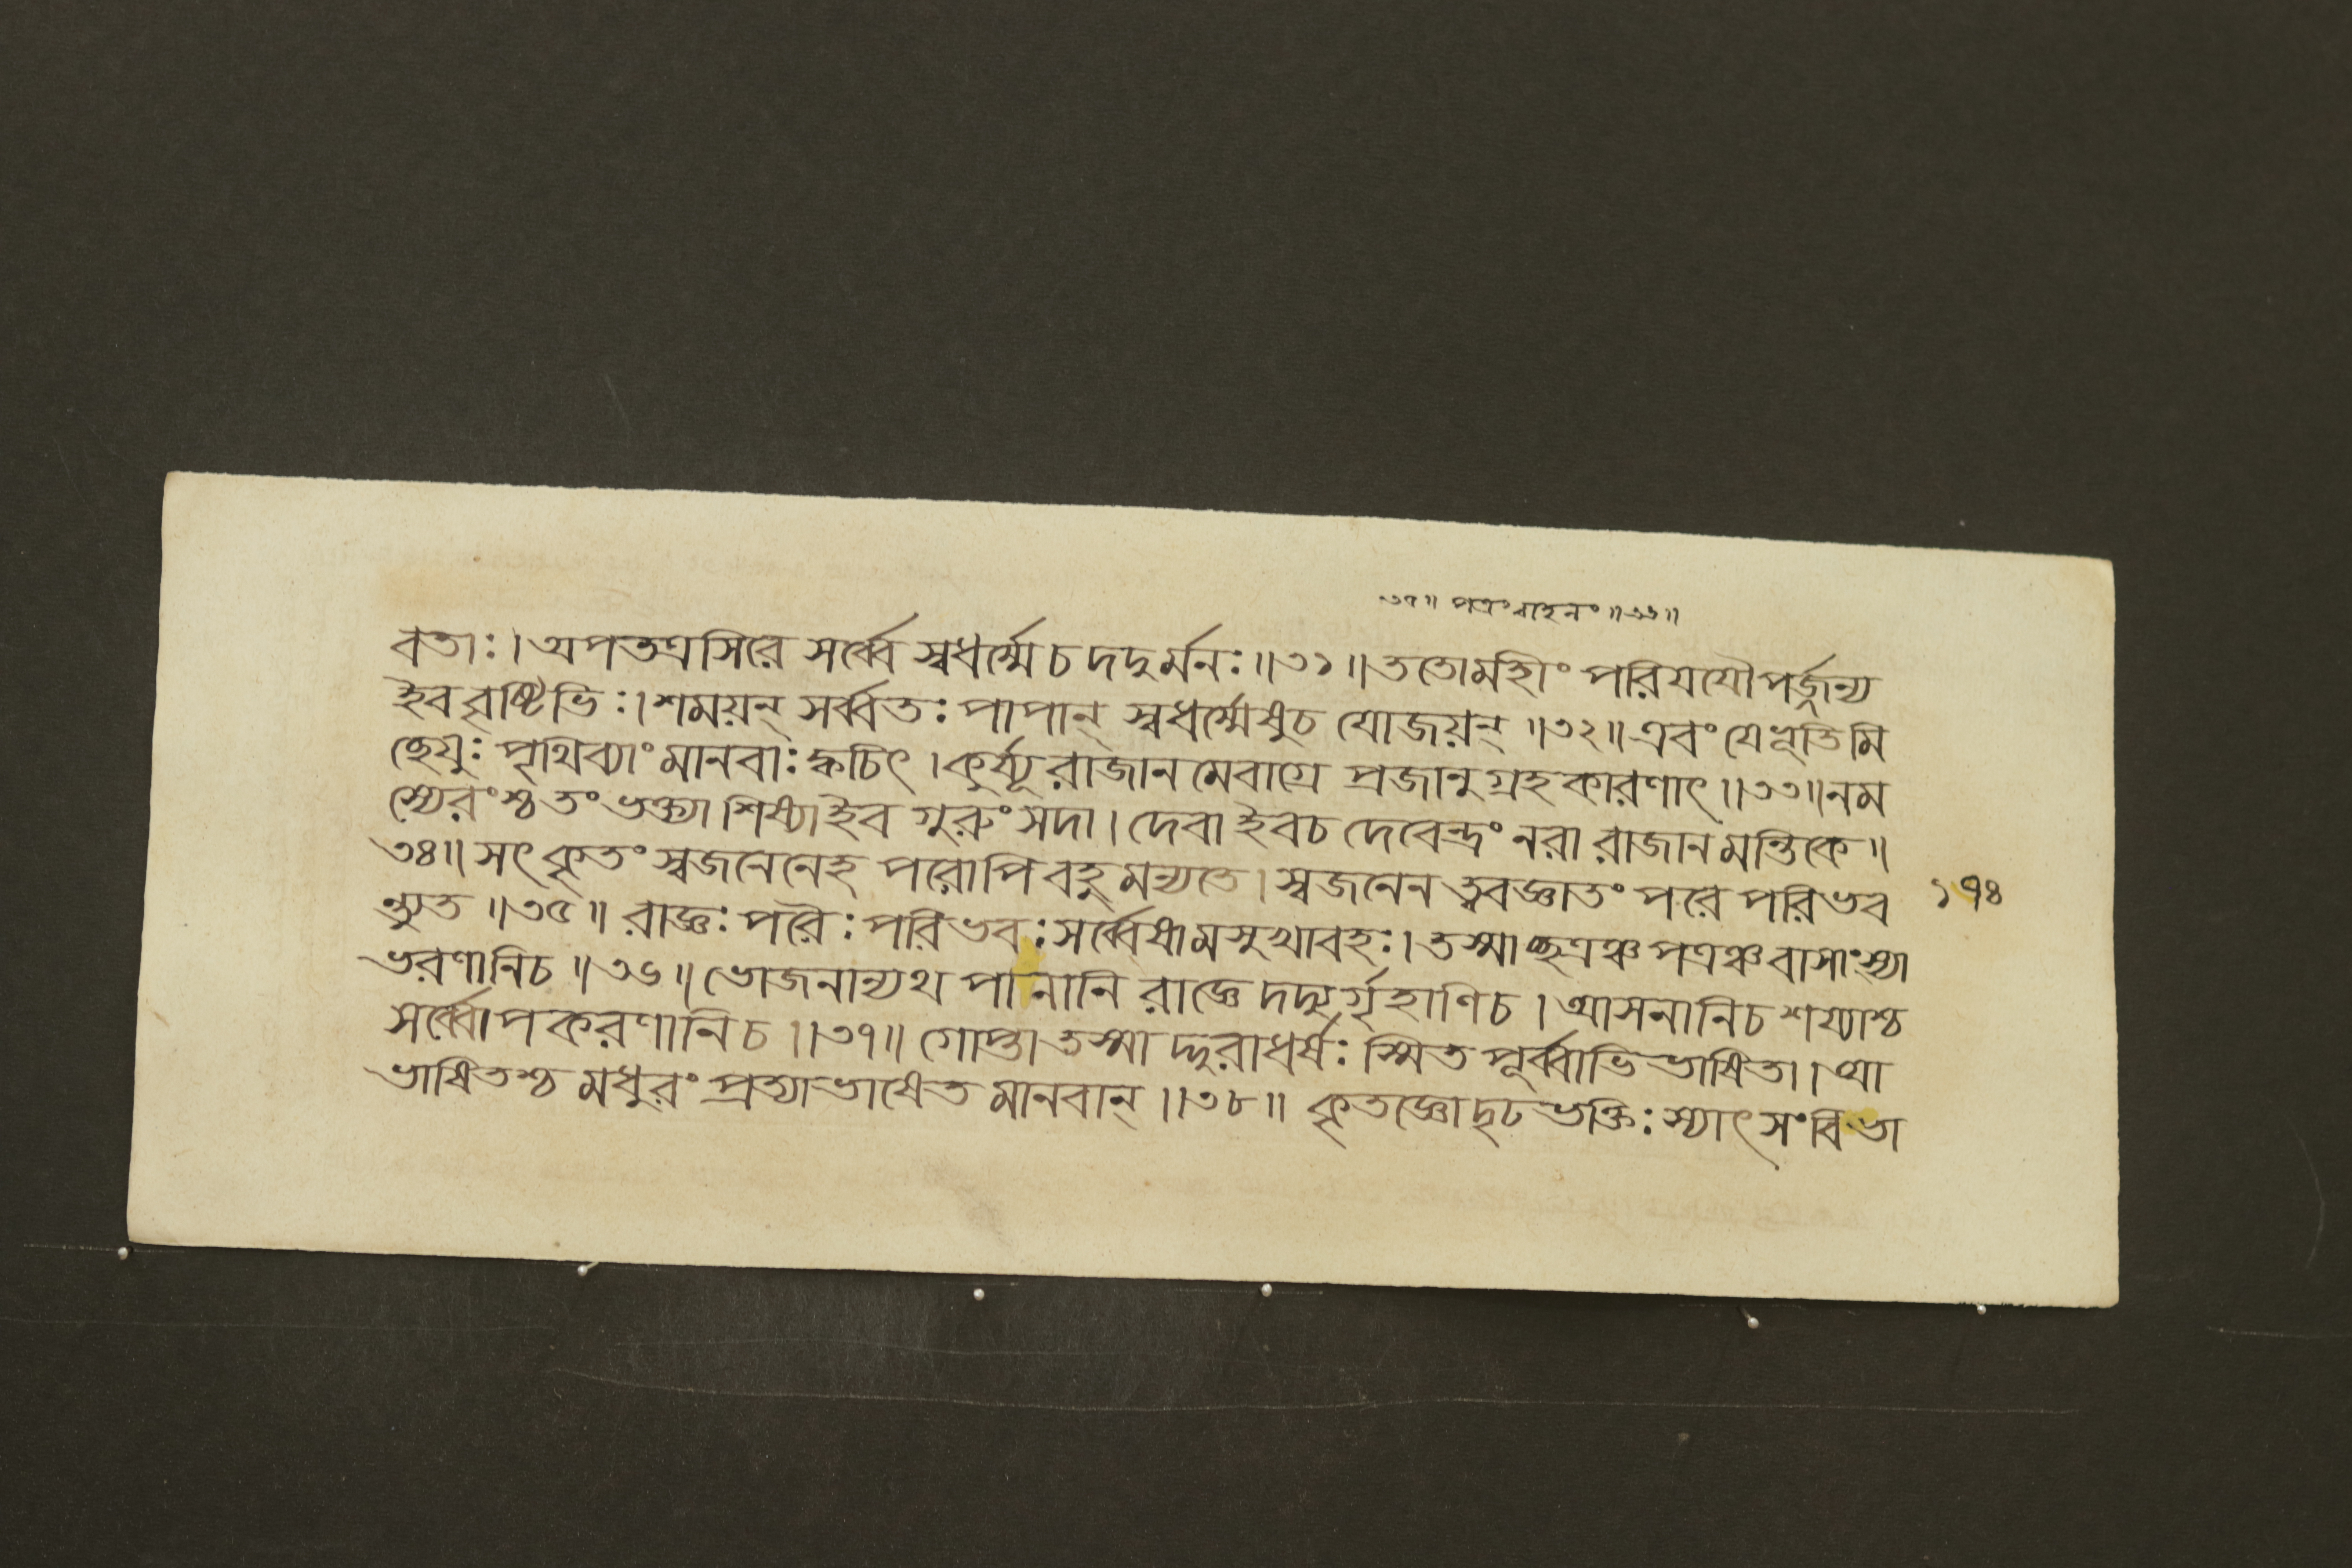 ৩৭॥ পত্রংবাহনং॥৩৬॥
বতাঃ।অপতত্রসিরে সর্ব্বে স্বধর্ম্মে চ দদুর্মনঃ॥৩১॥ততোমহীং পরিযযৌপর্জ্জন্য
ইব বৃষ্টিভিঃ।শময়ন্ সর্ব্বতঃ পাপান্ স্বধর্ম্মেষুচ যোজয়ন্॥৩২॥এবং যেভূতিমি
চ্ছেযুঃ পৃথিব্যাং মানবাঃ ক্বচিৎ।কুর্য্যূ রাজানমেবাগ্রে প্রজানুগ্রহকারণাৎ॥৩৩॥নম
স্যেরংশ্চ তং ভক্ত্যা শিষ্যাইব গুরুং সদা।দেবা ইবচ দেবেন্দ্রং নরা রাজানমন্তিকে॥
৩৪॥সৎকৃতং স্বজনেনেহ পরোপি বহু মন্যতে।স্বজনেন ত্ববজ্ঞাতং পরে পরিভব
ন্ত্যুত॥৩৫॥ রাজ্ঞঃ পরৈঃ পরিভবঃ সর্ব্বেষামসুখাবহঃ।তস্মাচ্ছত্রঞ্চ পত্রঞ্চ বাসাংস্যা
ভরণানিচ॥৩৬॥ভোজনান্যথ পানানি রাজ্ঞে দদ্যুর্গৃহাণিচ।আসনানিচ শয্যাশ্চ
সর্ব্বোপকরণানিচ॥৩৭॥ গোপ্তা তস্মাদ্দুরাধর্ষঃ স্মিতপূর্ব্বাভিভাষিতা।আ
ভাষিতশ্চ মধুরং প্রত্যাভাষেত মানবান্॥৩৮॥ কৃতজ্ঞোদৃঢভক্তিঃ স্যাৎ সংবিভা
১৭৪